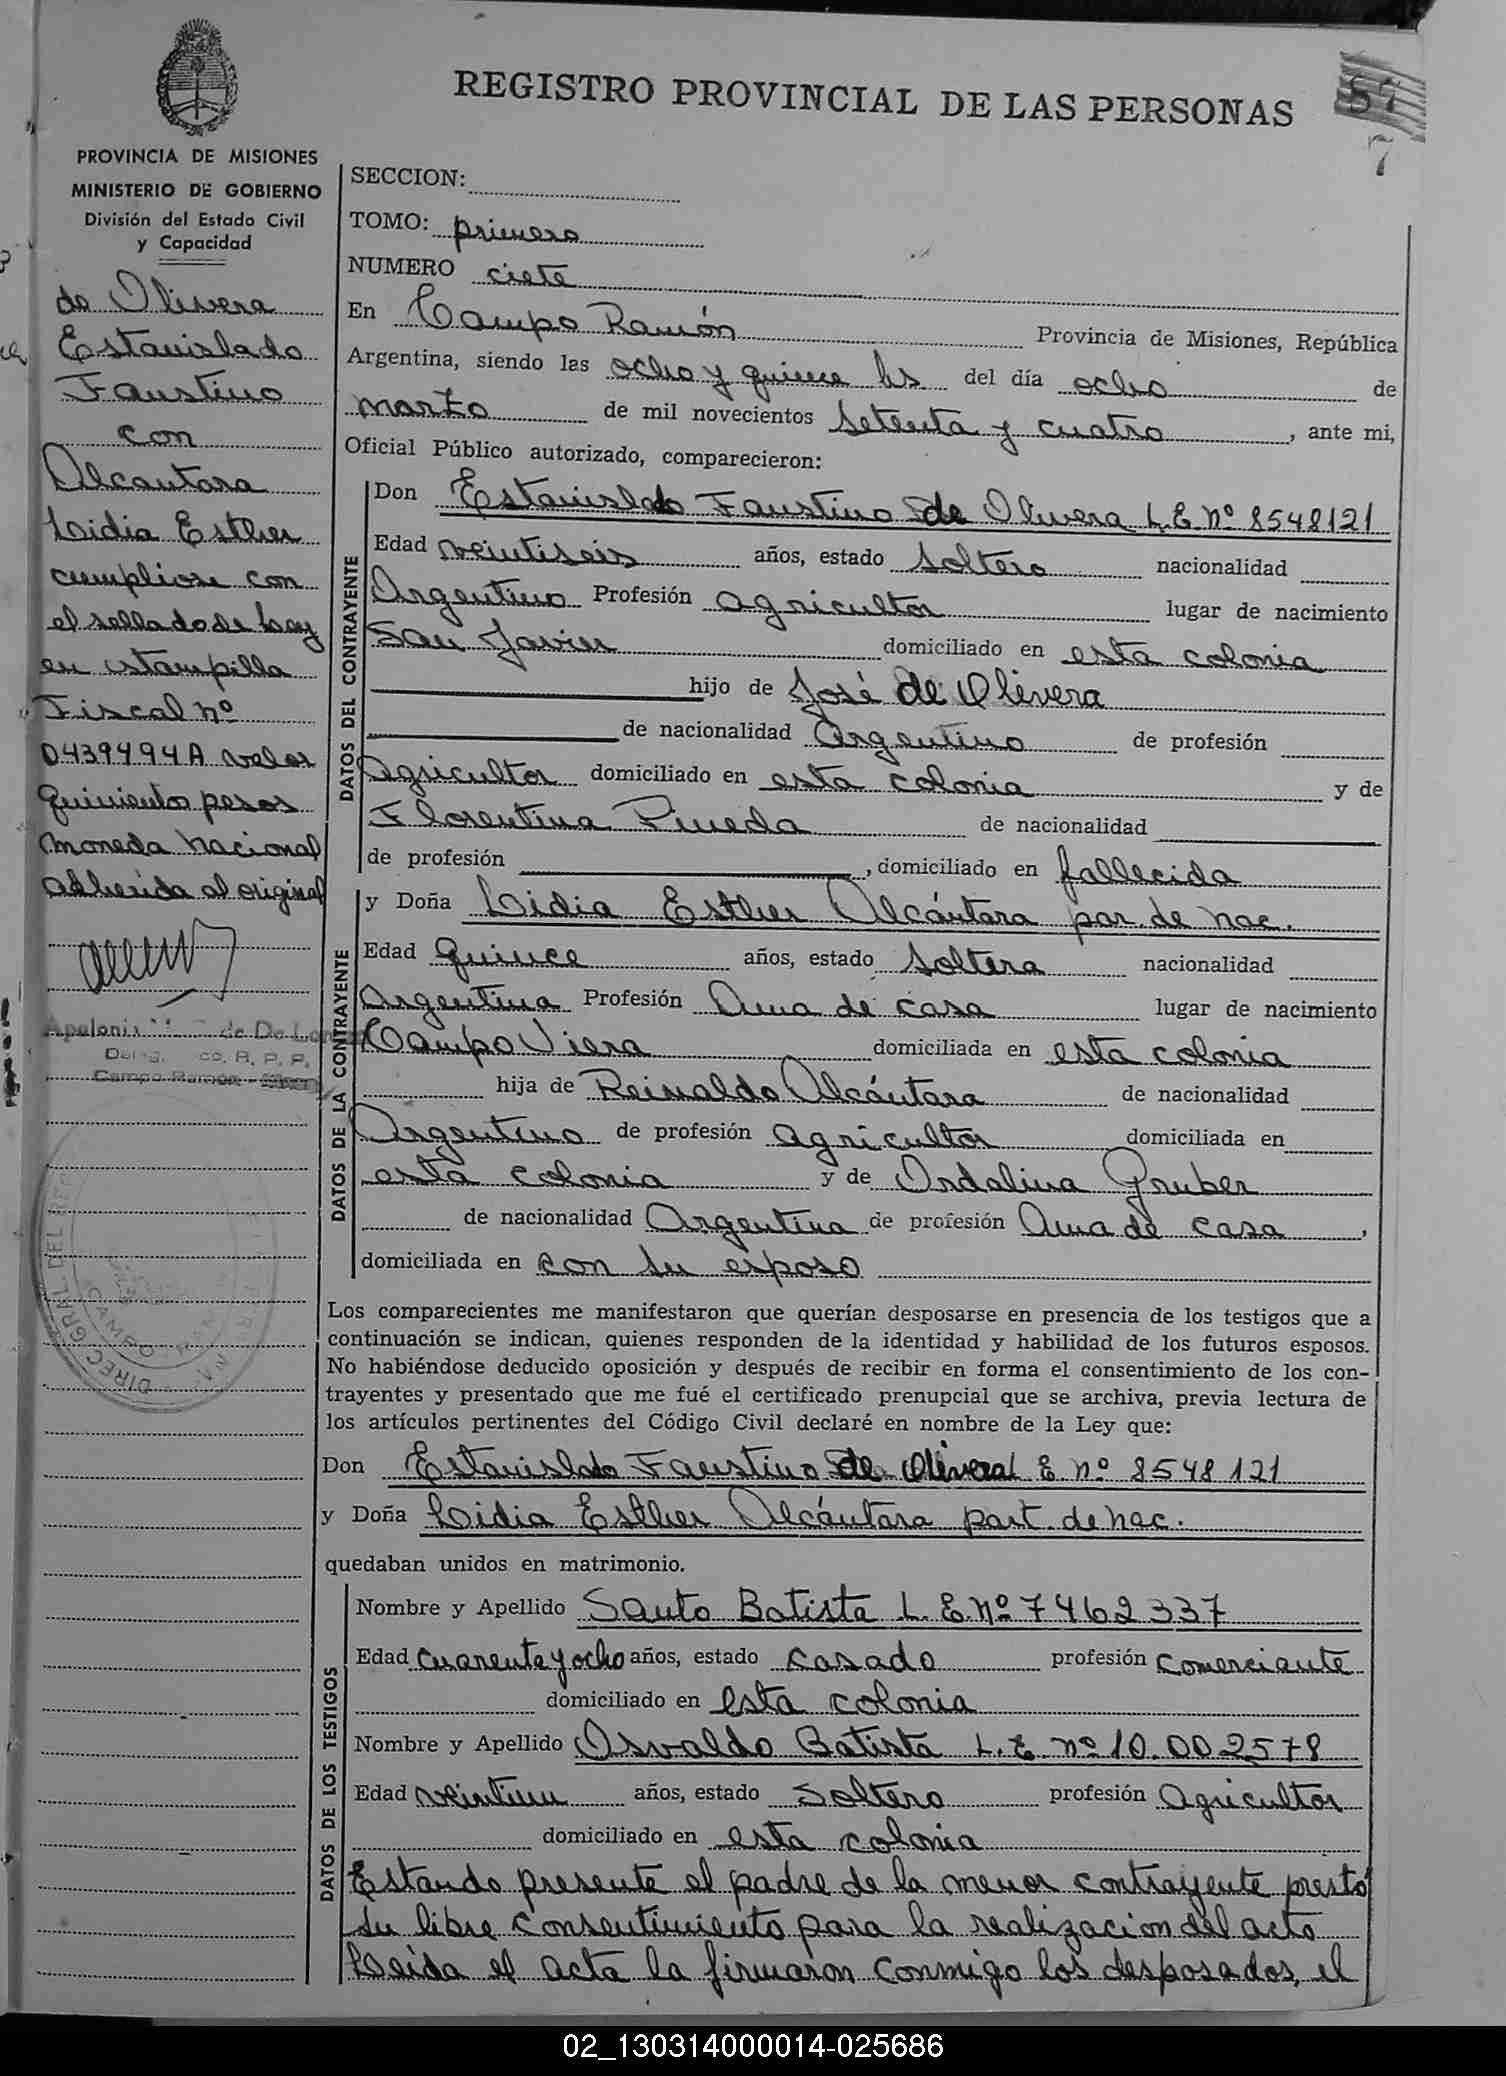 REGISTRO PROVINCIAL DE LAS PERSONAS
87
7
PROVINCIA DE MISIONES
MINISTERIO DE GOBIERNO
División del Estado Civil
y Capacidad
de Olivera
Estanislado
Faustino
con
Alcantara
Lidia Esther
cumpliose con
el sellado de Ley
en estampilla
Fiscal nº
0439494A valor
quinientos pesos
moneda nacional
adherida al original
Campo Ramón
SECCION:
TOMO: primero
NUMERO ciete
En Campo Ramón Provincia de Misiones, República
Argentina, siendo las ocho y quince hs del día ocho de
marzo de mil novecientos setenta y cuatro, ante mi,
Oficial Público autorizado, comparecieron:
DATOS DEL CONTRAYENTE
Don Estanislado Faustino de Olivera L.E. nº 8548121
Edad veintiseis años, estado soltero nacionalidad
Argentino Profesión agricultor lugar de nacimiento
San Javier domiciliado en esta colonia
hijo de José de Olivera
de nacionalidad Argentino de profesión
Agricultor domiciliado en esta colonia y de
Florentina Pineda de nacionalidad
de profesión , domiciliado en fallecida
DATOS DE LA CONTRAYENTE
y Doña Lidia Esther Alcántara par. de nac.
Edad quince años, estado soltera nacionalidad
Argentina Profesión Ama de casa lugar de nacimiento
Campo Viera domiciliada en esta colonia
hija de Reinaldo Alcántara de nacionalidad
Argentino de profesión agricultor domiciliada en
esta colonia y de Ordalina Gruber
de nacionalidad Argentina de profesión Ama de casa,
domiciliada en con su esposo
Los comparecientes me manifestaron que querían desposarse en presencia de los testigos que a
continuación se indican, quienes responden de la identidad y habilidad de los futuros esposos.
No habiéndose deducido oposición y después de recibir en forma el consentimiento de los con-
trayentes y presentado que me fué el certificado prenupcial que se archiva, previa lectura de
los artículos pertinentes del Código Civil declaré en nombre de la Ley que:
Don Estanislado Faustino de Olivera L E nº 8548121
y Doña Lidia Esther Alcántara part. de nac.
quedaban unidos en matrimonio.
DATOS DE LOS TESTIGOS
Nombre y Apellido Santo Batista L. E. nº 7462337
Edad cuarenta y ocho años, estado casado profesión comerciante
domiciliado en esta colonia
Nombre y Apellido Osvaldo Batista L. E. nº 10.002578
Edad veintiun años, estado soltero profesión agricultor
domiciliado en esta colonia
Estando presente el padre de la menor contrayente prestó
su libre consentimiento para la realizacion del acto
Leida el acta la firmaron conmigo los desposados, el
02_130314000014-025686